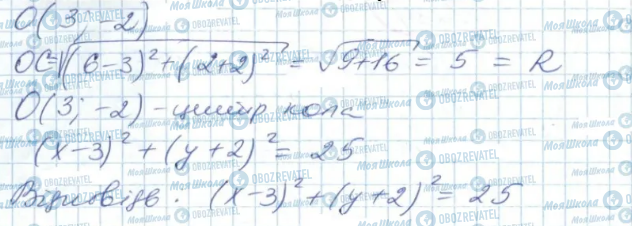 O(3; -2)
OC = √((6-3)² + (2+2)²) = √(9+16) = 5 = R
O(3; -2) - центр кола
(x-3)² + (y+2)² = 25
Відповідь. (x-3)² + (y+2)² = 25